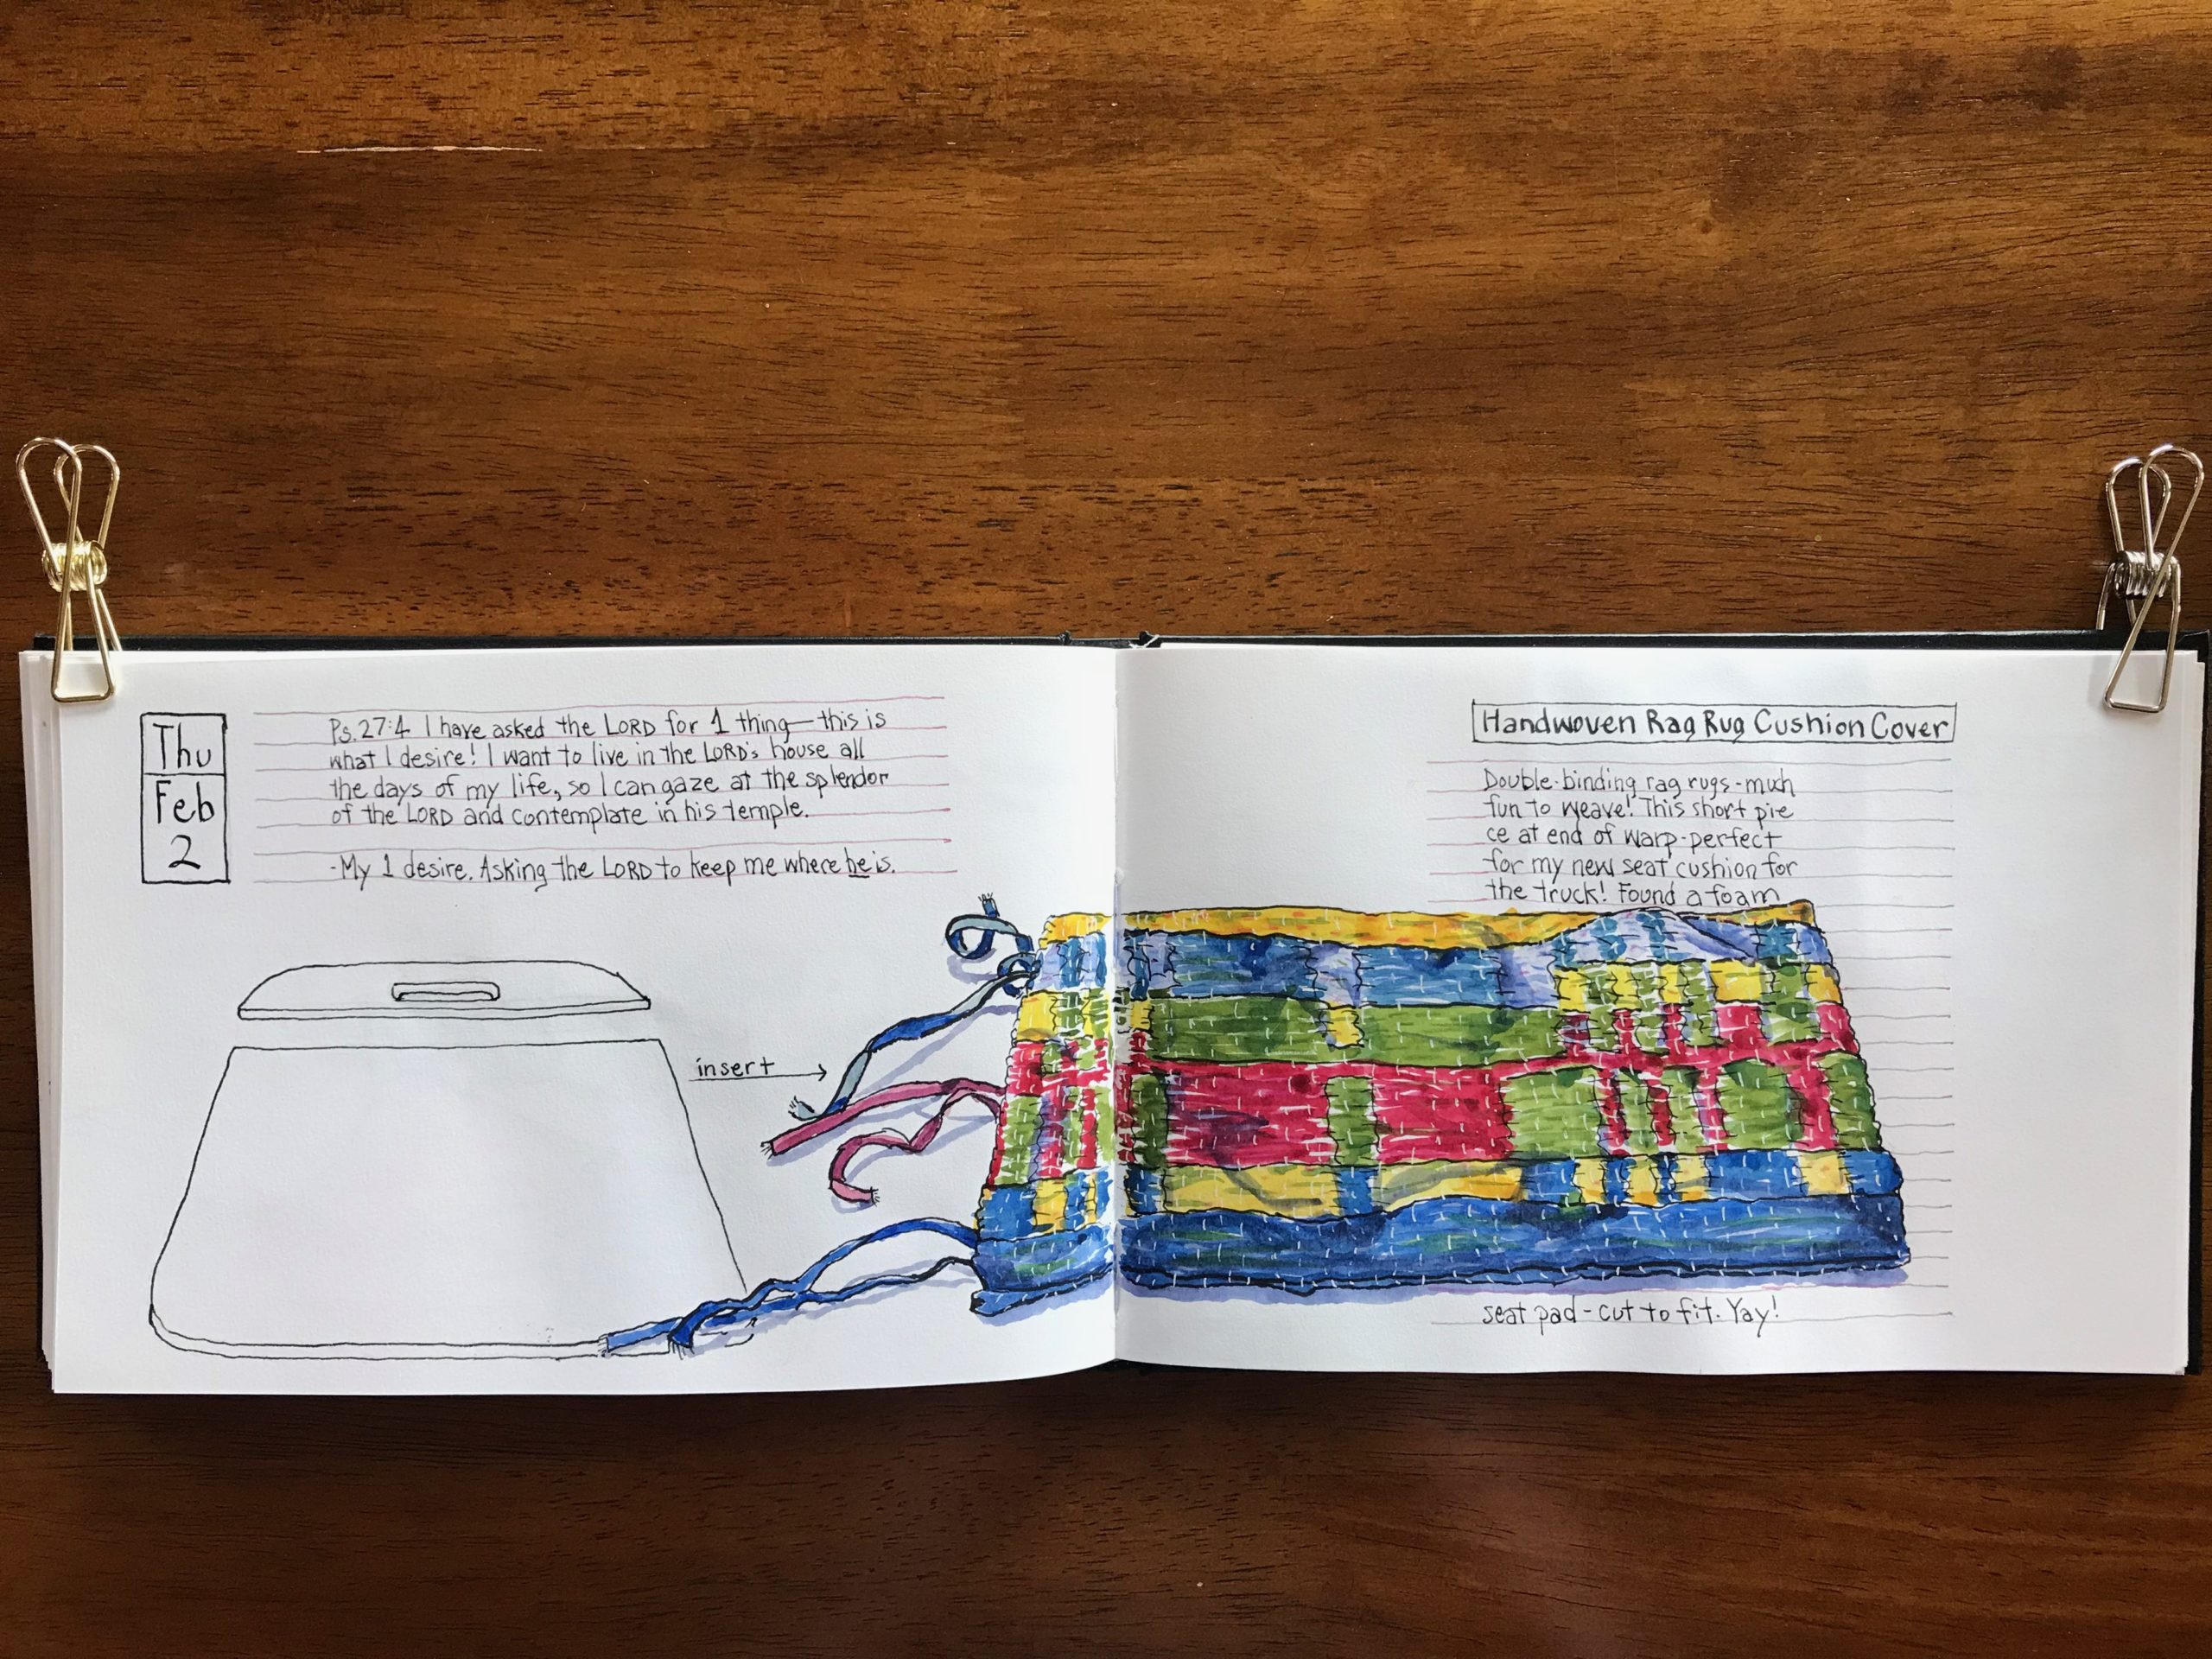 Thu
Feb
2
Ps. 27:4 I have asked the LORD for 1 thing—this is
what I desire! I want to live in the LORD's house all
the days of my life, so I can gaze at the splendor
of the LORD and contemplate in his temple.
-My 1 desire. Asking the LORD to keep me where he is.
insert
Handwoven Rag Rug Cushion Cover
Double-binding rag rugs-much
fun to weave! This short pie
ce at end of warp-perfect
for my new seat cushion for
the truck! Found a foam
seat pad-cut to fit. Yay!